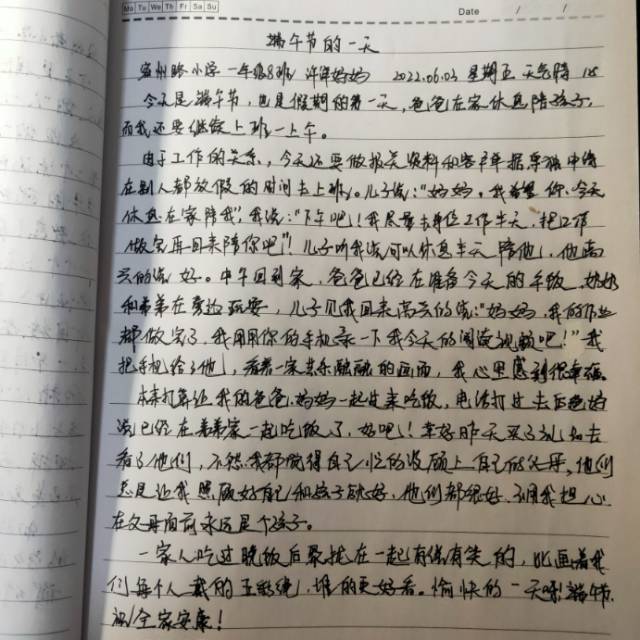 Mo Tu We Th Fr Sa Su
Date / /
端午节的一天
一年级8班 许 妈妈 2022.06.03 星期五 天气晴
今天是端午节,也是假期的第一天,爸爸在家休息陪孩子,
而我还要继续上班一上午。
由于工作的关系,今天还要做报关资料和客户单据
在别人都放假的时间去上班。儿子说:“妈妈,我希望你今天
休息在家陪我”,我说:“下午吧!我尽量去单位工作半天,把工作
做完再回来陪你吧”!儿子听我说可以休息半天陪他,他高
兴的说好。中午回到家,爸爸已经在准备今天的午饭,奶奶
和弟弟在旁边玩耍,儿子见我回来高兴的说:“妈妈,我的作业
都做完了,我用用你的手机录一下我今天的阅读视频吧!”我
把手机给了他,看着一家其乐融融的画面,我心里感到很幸福。
本来打算让我的爸爸妈妈一起过来吃饭,电话打过去后爸妈
说已经在弟弟家一起吃饭了,好吧!幸好昨天买了礼物去
看了他们,不然我都觉得自己忙的没顾上自己的父母,他们
总是让我照顾好自己和孩子就好,他们都很好,不用我担心
在父母面前永远是个孩子。
一家人吃过晚饭后聚拢在一起有说有笑的,比画着我
们每个人戴的五彩绳,谁的更好看。愉快的一天呀!端午节
祝全家安康!